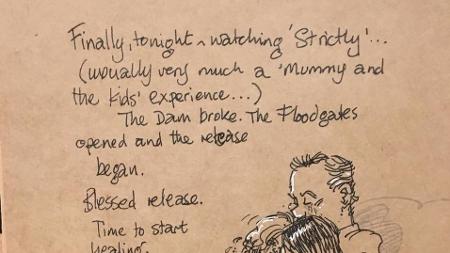 Finally, tonight ^ watching 'Strictly'...
(usually very much a 'Mummy and
the kids' experience...)
The Dam broke. The Floodgates
opened and the release
began.
Blessed release.
Time to start
healing.